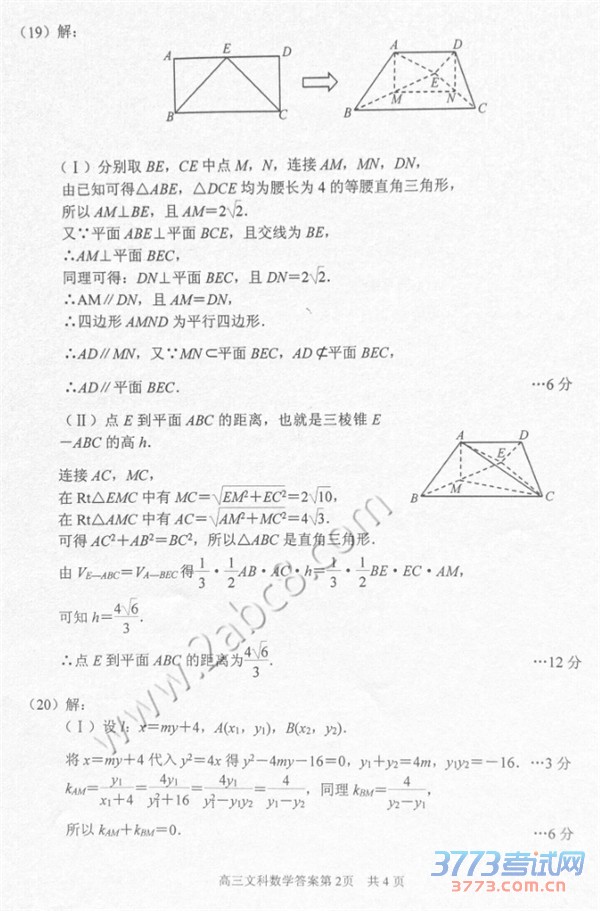 (19) 解:
A E D
B C
A D
E
B M N C
(Ⅰ) 分别取 BE, CE 中点 M, N, 连接 AM, MN, DN,
由已知可得△ABE, △DCE 均为腰长为 4 的等腰直角三角形,
所以 AM⊥BE, 且 AM=2√2.
又∵平面 ABE⊥平面 BCE, 且交线为 BE,
∴AM⊥平面 BEC,
同理可得: DN⊥平面 BEC, 且 DN=2√2.
∴AM∥DN, 且 AM=DN,
∴四边形 AMND 为平行四边形.
∴AD∥MN, 又∵MN⊂平面 BEC, AD⊄平面 BEC,
∴AD∥平面 BEC. …6 分
(Ⅱ) 点 E 到平面 ABC 的距离, 也就是三棱锥 E
-ABC 的高 h.
A D
E
M
B C
连接 AC, MC,
在 Rt△EMC 中有 MC=√(EM²+EC²)=2√10,
在 Rt△AMC 中有 AC=√(AM²+MC²)=4√3.
可得 AC²+AB²=BC², 所以△ABC 是直角三角形.
由 V_{E—ABC}=V_{A—BEC} 得 1/3 · 1/2 AB · AC · h= 1/3 · 1/2 BE · EC · AM,
可知 h= 4√6/3.
∴点 E 到平面 ABC 的距离为 4√6/3. …12 分
(20) 解:
(Ⅰ) 设 l: x=my+4, A(x₁, y₁), B(x₂, y₂).
将 x=my+4 代入 y²=4x 得 y²-4my-16=0, y₁+y₂=4m, y₁y₂=-16. …3 分
k_{AM}= y₁/(x₁+4) = 4y₁/(y₁²+16) = 4y₁/(y₁²-y₁y₂) = 4/(y₁-y₂), 同理 k_{BM}= 4/(y₂-y₁),
所以 k_{AM}+k_{BM}=0. …6 分
高三文科数学答案第 2页 共 4 页
www.2abc8.com
3773考试网
3773.com.cn